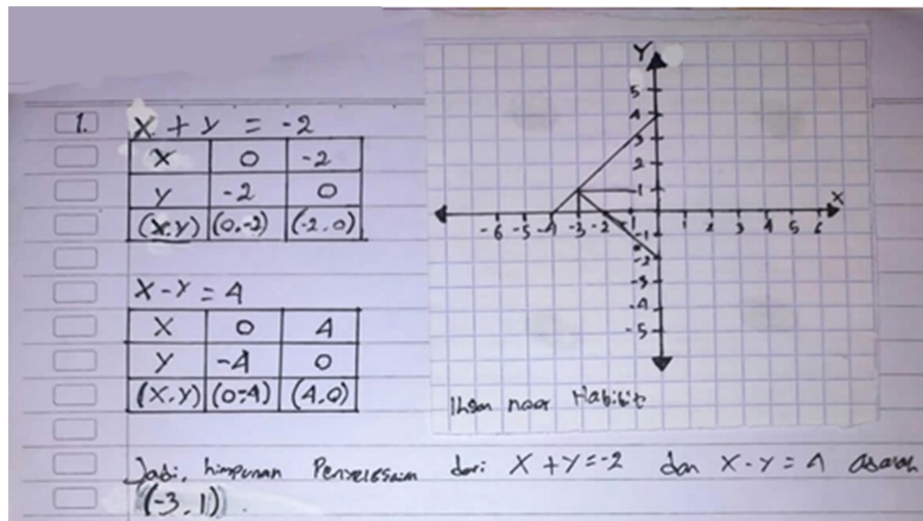 1. X + Y = -2
X 0 -2
Y -2 0
(X.Y) (0.-2) (-2.0)
X - Y = 4
X 0 4
Y -4 0
(X.Y) (0-4) (4.0)
Y
5
4
3
2
1
X
-6 -5 -4 -3 -2 -1 1 2 3 4 5 6
-1
-2
-3
-4
-5
noor Habibit
Jadi, himpunan Penyelesaian dari X + Y = -2 dan X - Y = 4
(-3.1).